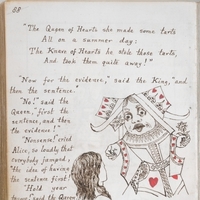 88
"The Queen of Hearts she made some tarts
All on a summer day:
The Knave of Hearts he stole those tarts,
And took them quite away!"
"Now for the evidence," said the King, "and
then the sentence."
"No!" said the
Queen, "first the
sentence, and then
the evidence!"
"Nonsense!" cried
Alice, so loudly that
everybody jumped,
"the idea of having
the sentence first!"
"Hold your
tongue!" said the Queen